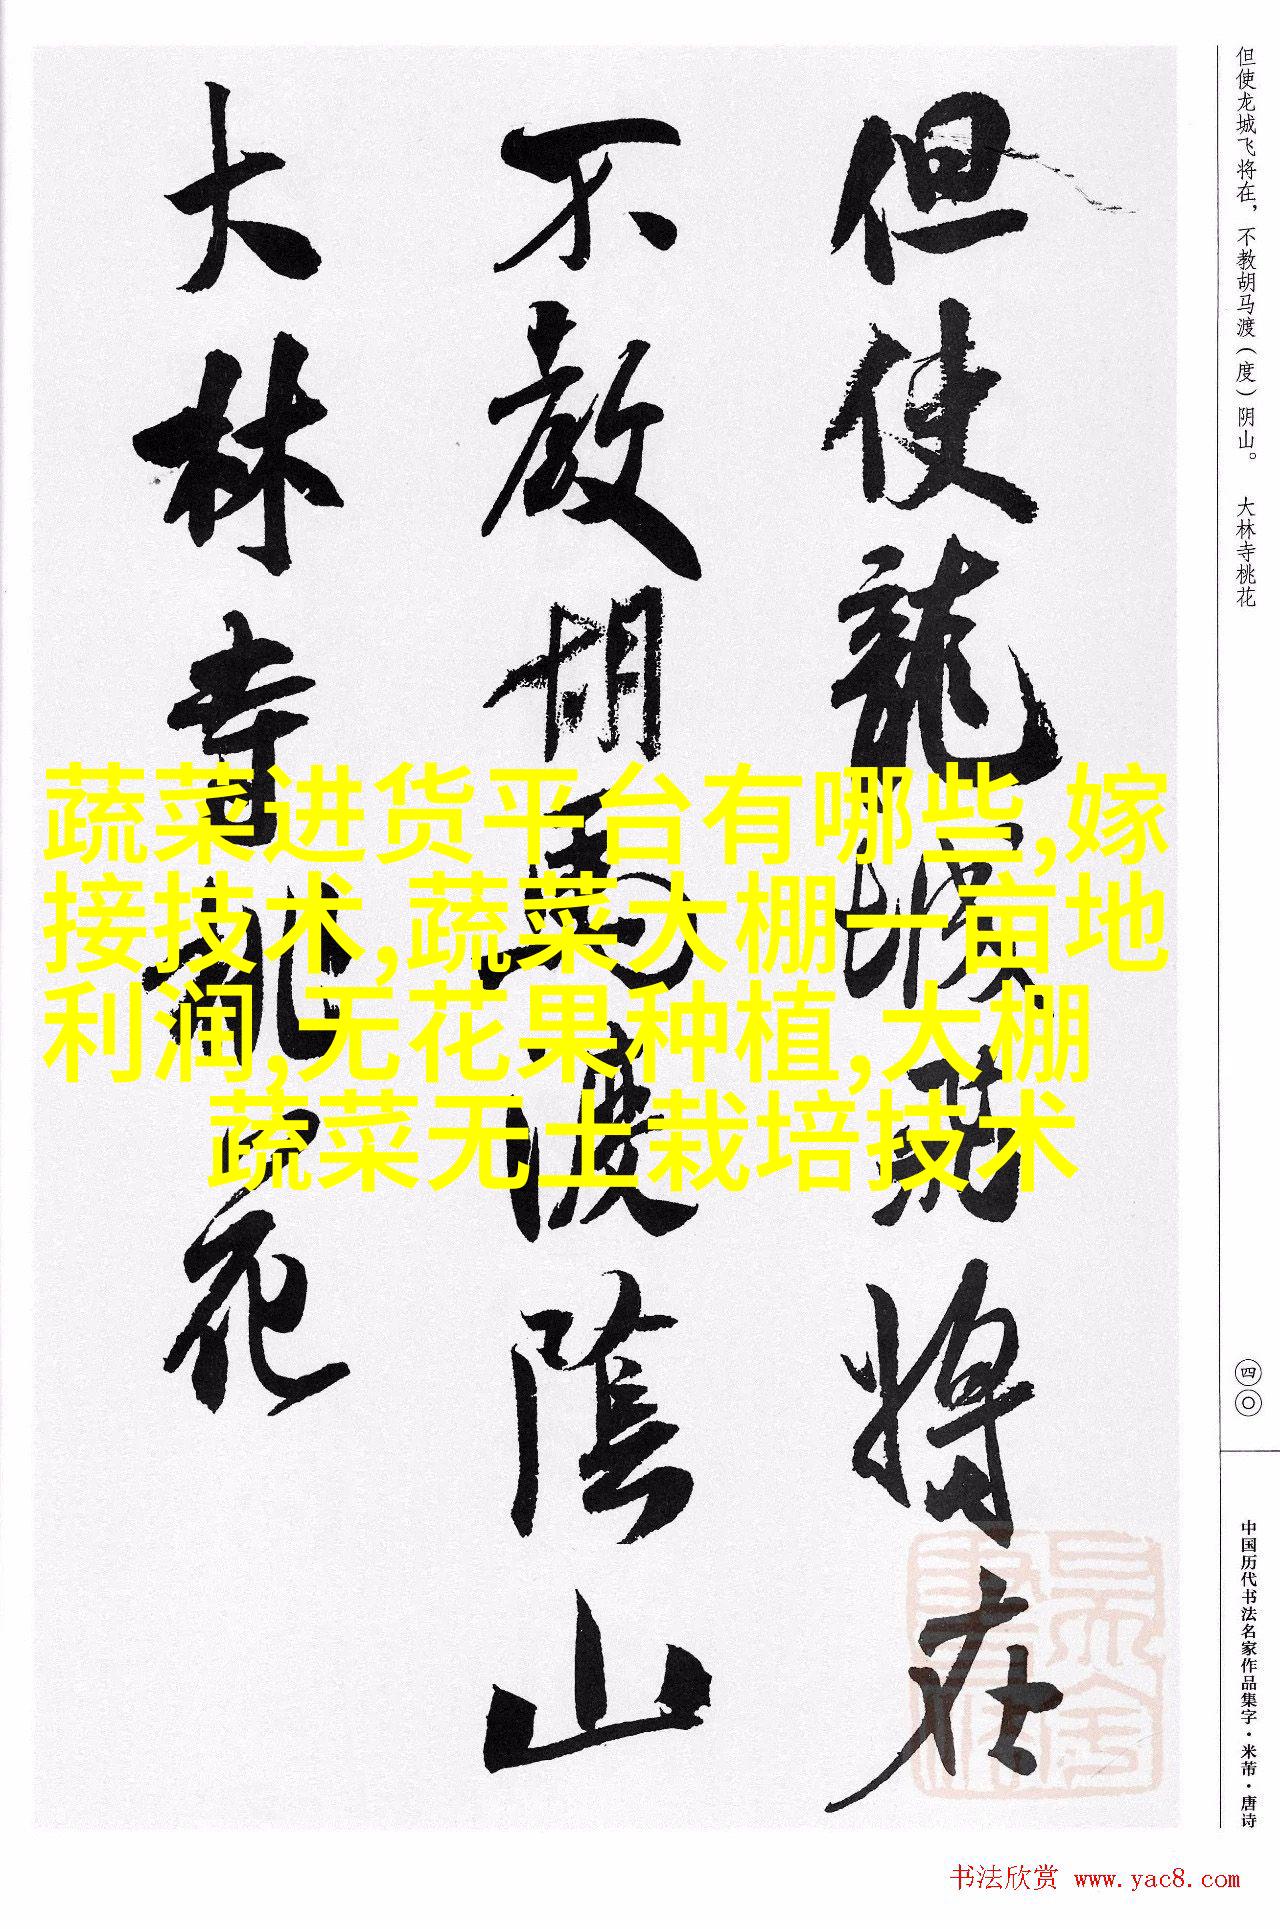 但使龍城飛將在
不教胡馬渡陰山
大林寺桃花
但使龙城飞将在，不教胡马渡（度）阴山。 大林寺桃花
四〇
中国历代书法名家作品集字·米芾·唐诗
蔬菜进货平台有哪些,嫁
接技术,蔬菜大棚一亩地
利润,无花果种植,大棚
蔬菜无土栽培技术
书法欣赏 www.yac8.com